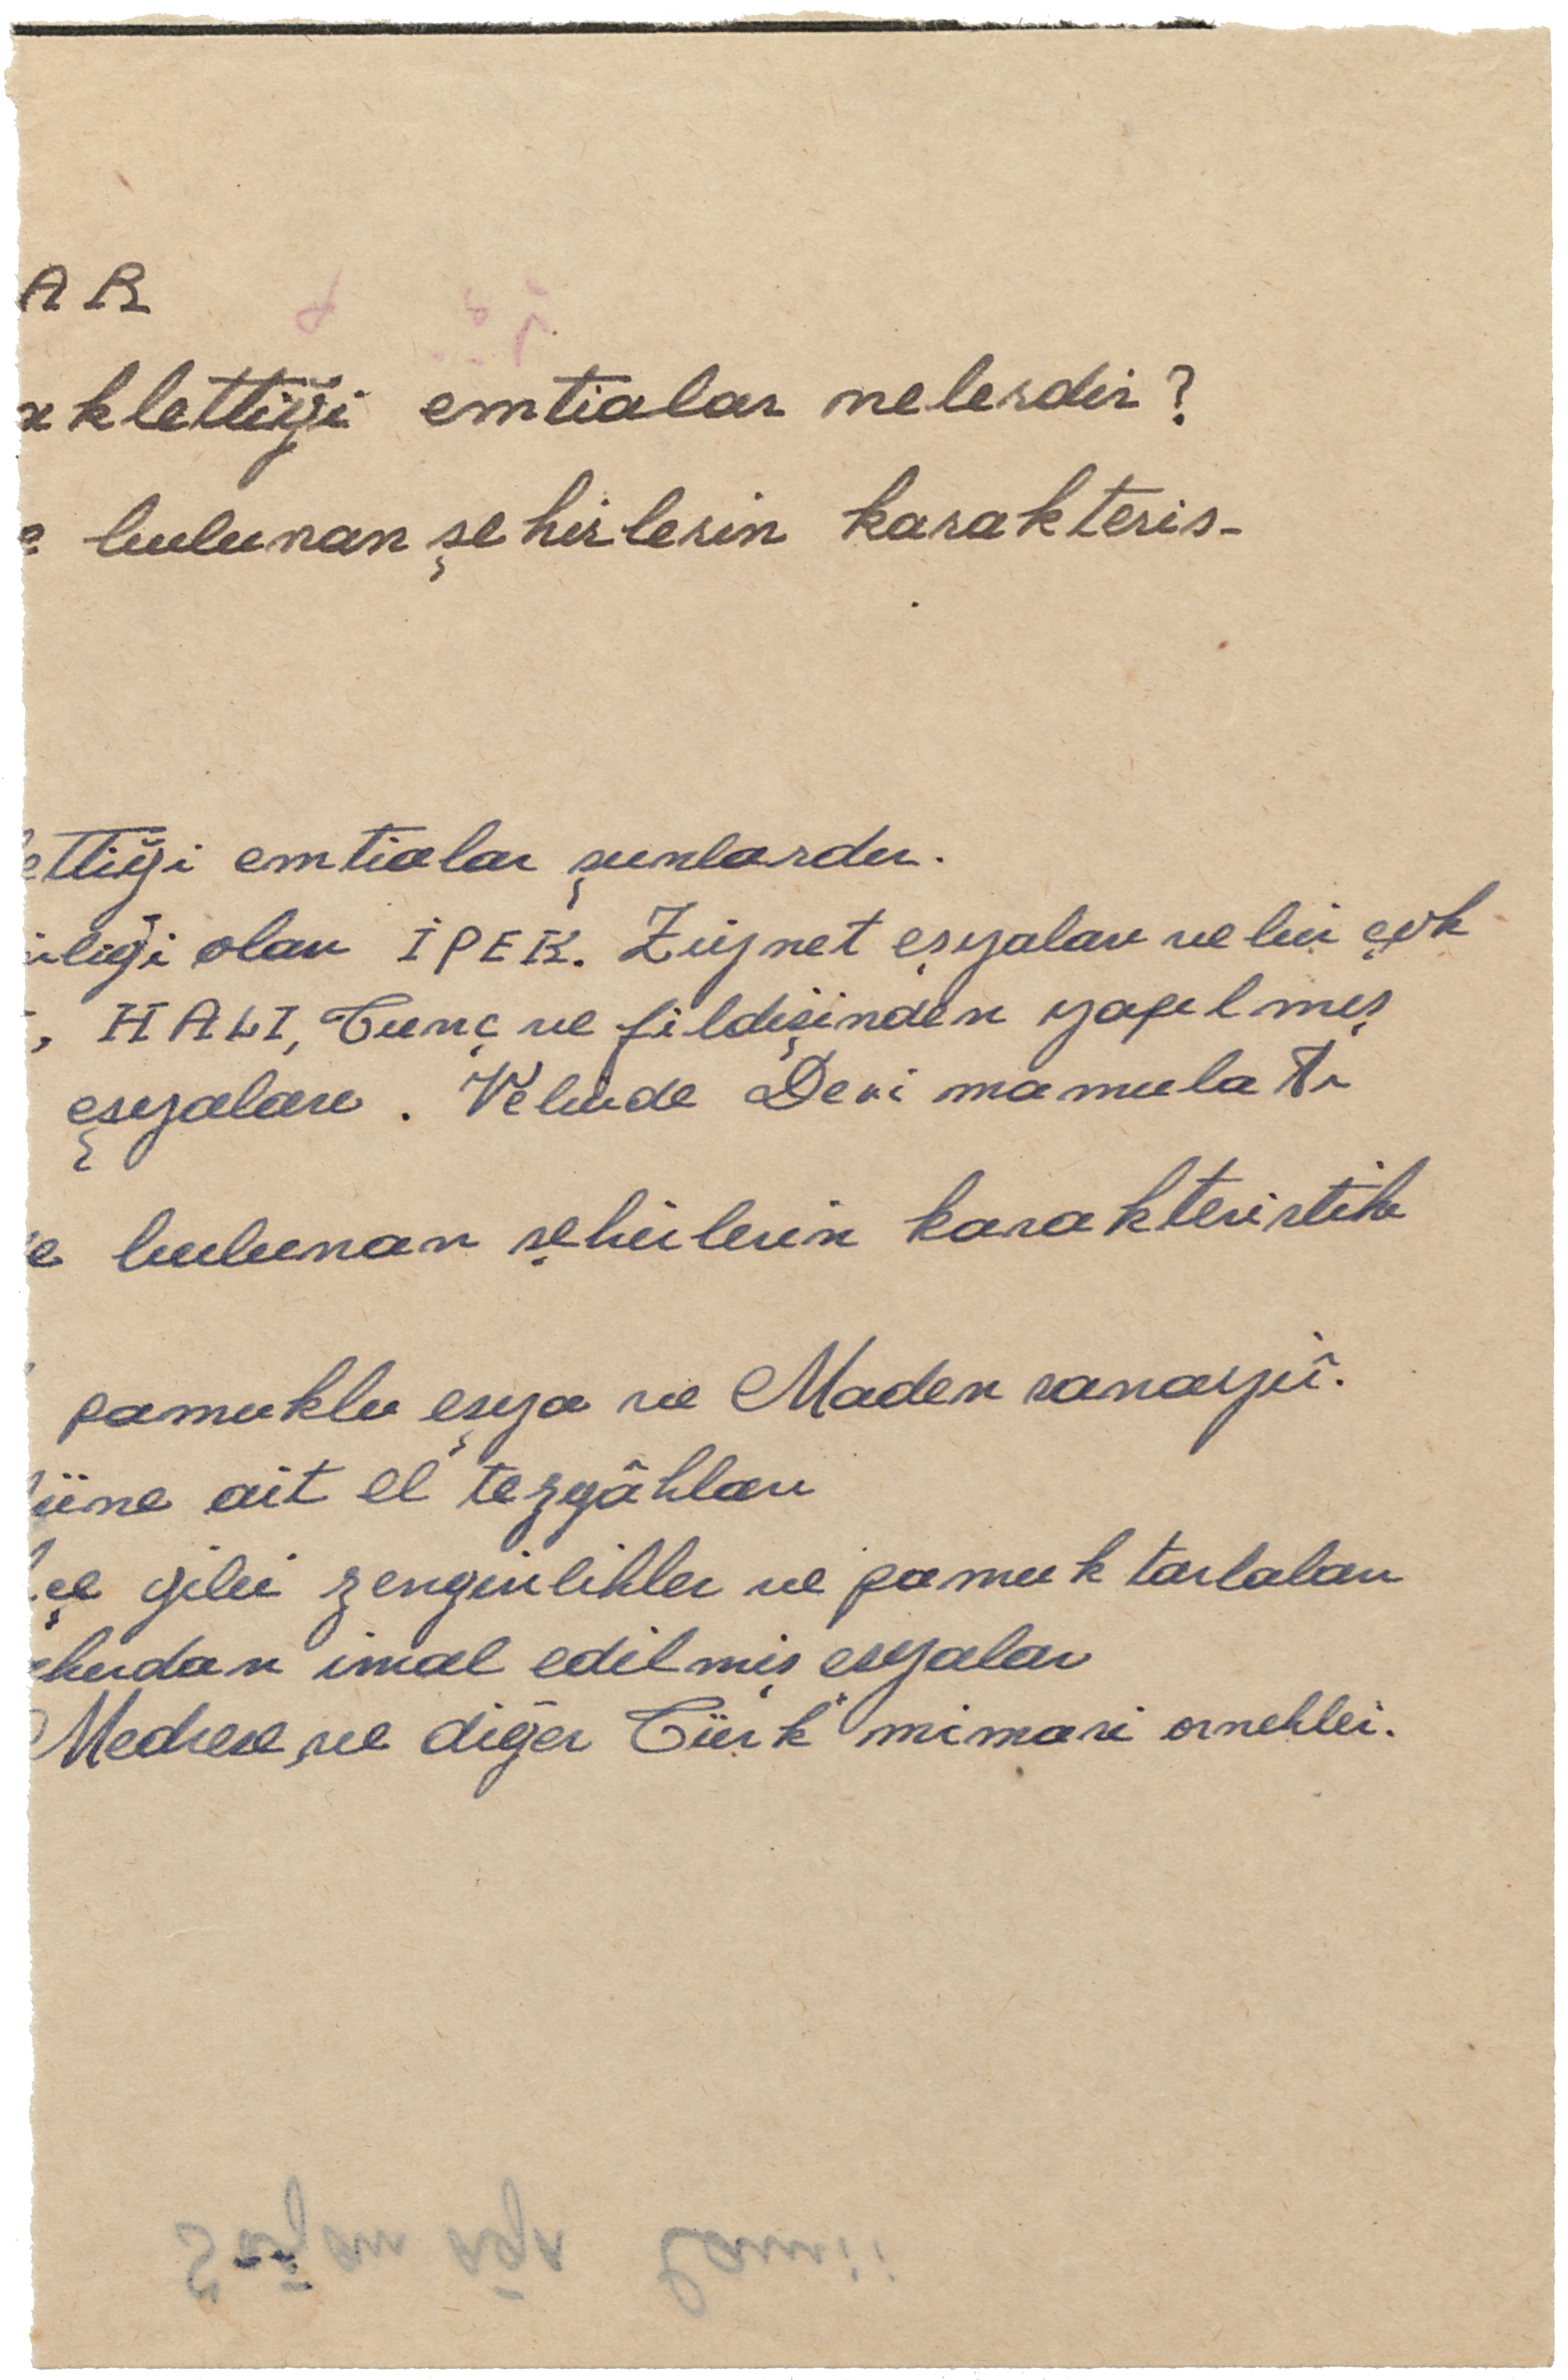 AR
aklettiği emtialar nelerdir?
e bulunan şehirlerin karakteris-
ettiği emtialar şunlardır.
nliği olan İPEK. Ziynet eşyaları ve bir çok
, HALI, Tunç ve fildişinden yapılmış
eşyaları. Ve birde Deri mamulatı
e bulunan şehirlerin karakteristik
pamuklu eşya ve Maden sanayii.
üne ait el tezgâhları
çe gibi zenginlikler ve pamuk tarlaları
imal edilmiş eşyalar
Medrese, ve diğer Türk mimari ornekleri.